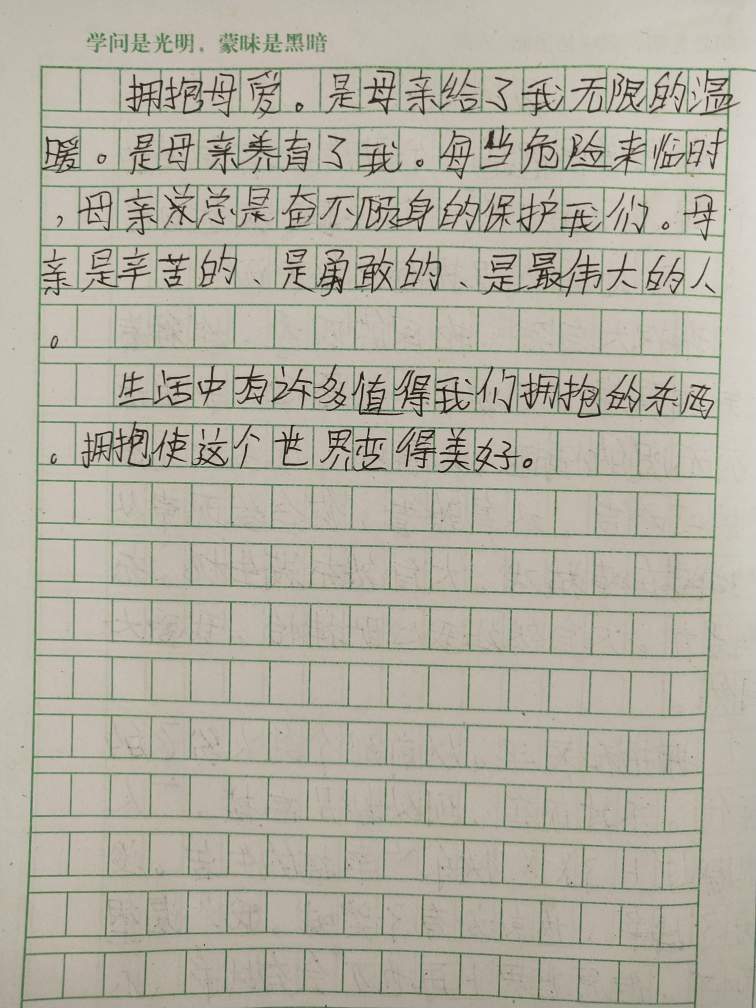 学问是光明，蒙昧是黑暗
拥抱母爱。是母亲给了我无限的温
暖。是母亲养育了我。每当危险来临时
，母亲总是奋不顾身的保护我们。母
亲是辛苦的、是勇敢的、是最伟大的人
。
生活中有许多值得我们拥抱的东西
。拥抱使这个世界变得美好。